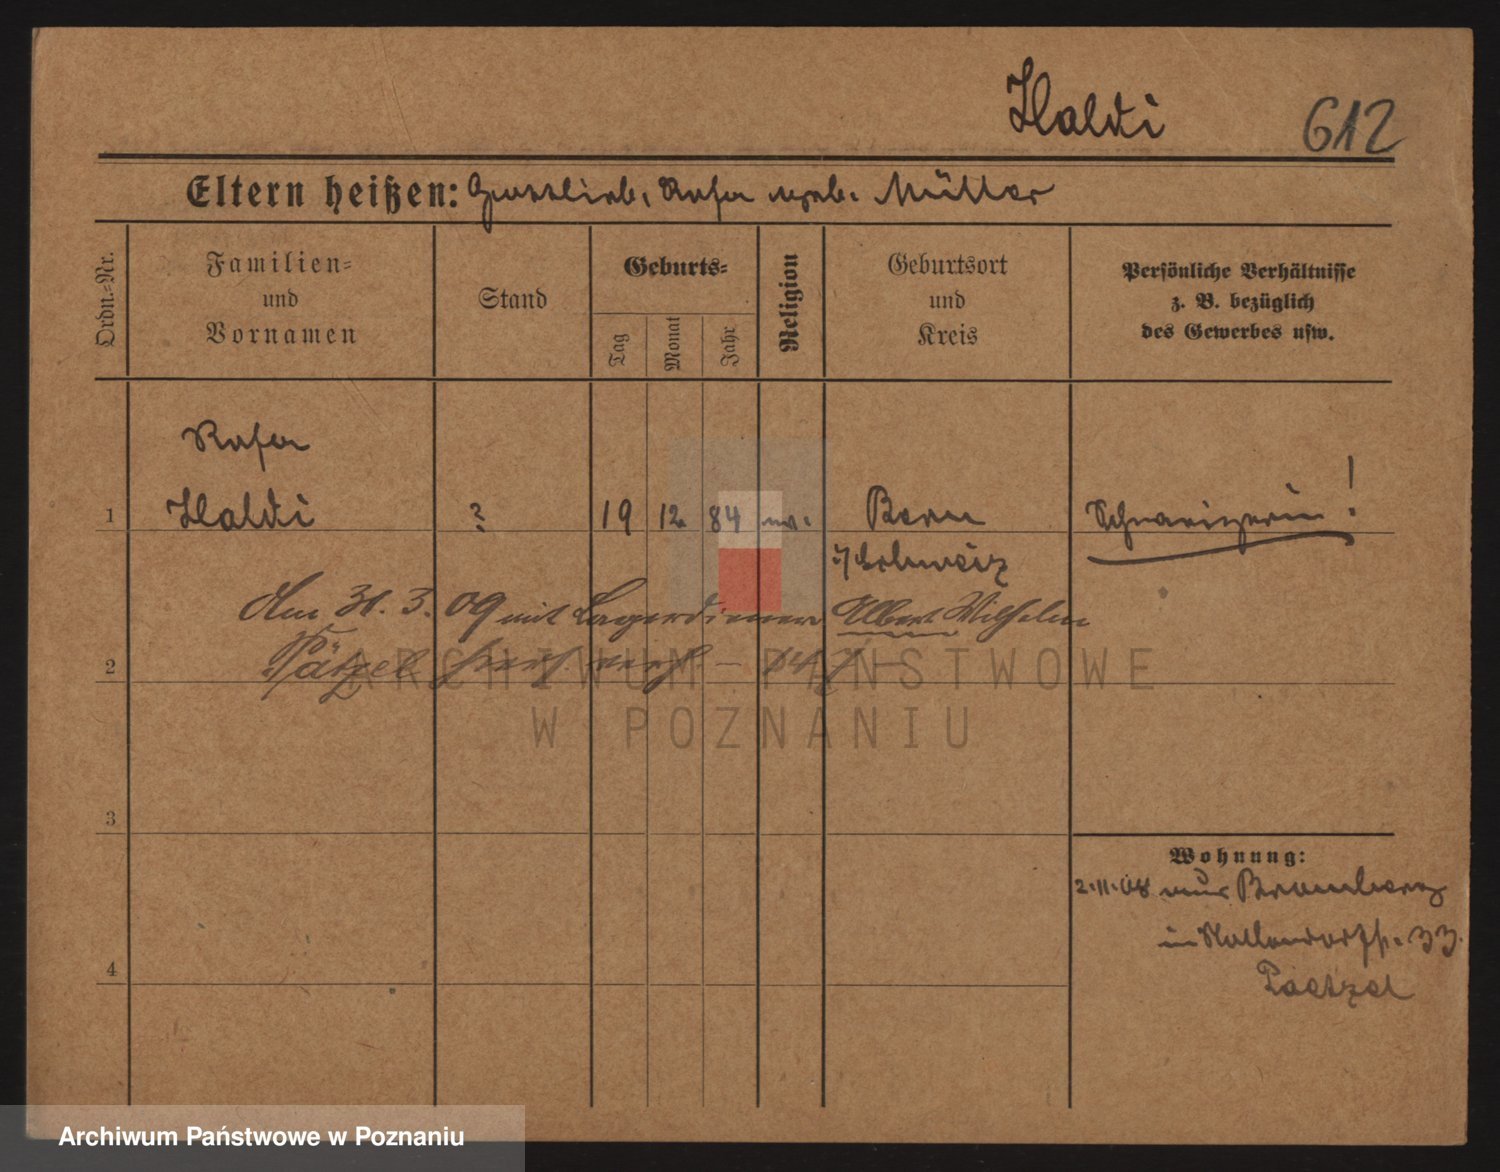 Haldi 612
Eltern heißen: Gottlieb, Rosa geb. Müller
Ordn.=Nr.
Familien=
und
Vornamen
Stand
Geburts=
Tag
Monat
Jahr
Religion
Geburtsort
und
Kreis
Persönliche Verhältnisse
z. B. bezüglich
des Gewerbes usw.
Rosa
1 Haldi ? 19 12 84 ev. Bern Schweizerin!
i/Schweiz
Am 31. 3. 09 mit Lagerdiener Albert Wilhelm
2 Pätzel
3
Wohnung:
2.11.08 aus Bromberg
in 33.
Paetzel
4
ARCHIWUM PAŃSTWOWE
W POZNANIU
Archiwum Państwowe w Poznaniu